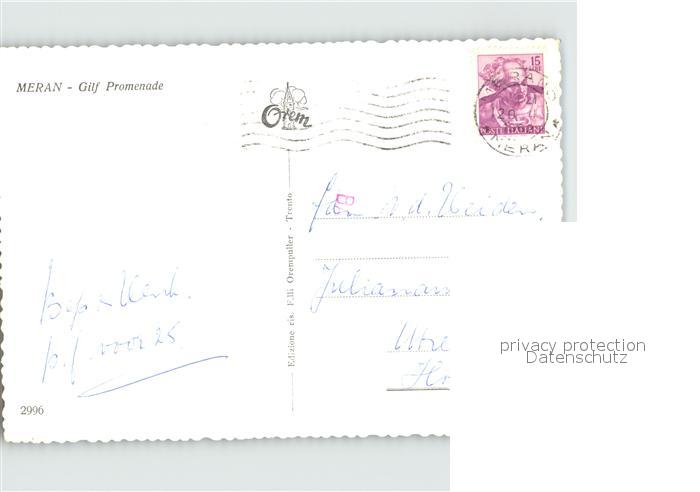 MERAN - Gilf Promenade
Orem
15
LIRE
POSTE ITALIANE
MERANO
Edizione ris. F.lli Orempuller - Trento
B
Fam. v. d. Heiden,
Julianan
Utre
Ho
p.f. voor 25.
2996
privacy protection
Datenschutz